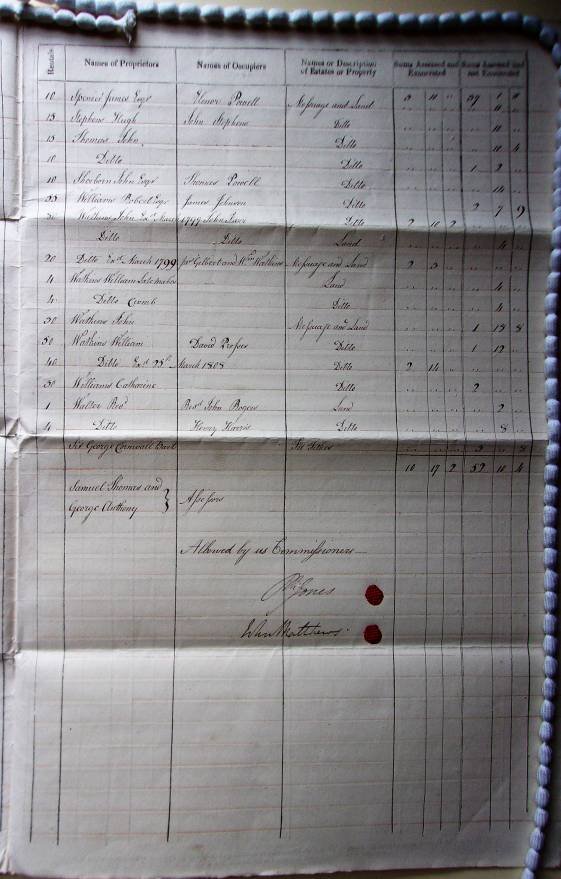 Rentals Names of Proprietors Names of Occupiers Names or Description of Estates or Property Sums Assessed and Exonerated Sums Assessed and not Exonerated
10 Spencer James Esqr Powell Messuage and Land 37 1
15 Stephens Hugh John Stephens Ditto
15 Thomas John Ditto 10 4
10 Ditto Ditto 1 2
10 John Esqr Thomas Powell Ditto 14
Williams Robert Esqr James Johnson Ditto 2 7 9
Watkins John March 1799 John Ditto 2 10 2
Ditto Ditto Land 4
20 Ditto March 1799 Gilbert and Wm Watkins Messuage and Land 2 5
4 Watkins William Late Land 4
4 Ditto Ditto 4
30 Watkins John Messuage and Land 1 15 8
50 Watkins William David Prosser Ditto 1 12
40 Ditto Ext 25th March 1808 Ditto 2 14
30 Williams Catharine Ditto 2
1 Walter Revd Revd John Rogers Land 2
4 Ditto Henry Harris Ditto 8
Sir George Cornwall Bart Tithes 8
10 17 2 52 10 4
Samuel Thomas and
George Anthony } Assessors
Allowed by us Commissioners
Jones
John Matthews